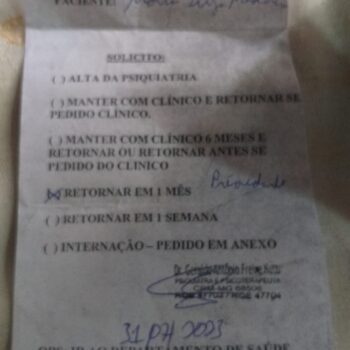 PACIENTE:
SOLICITO:
( ) ALTA DA PSIQUIATRIA
( ) MANTER COM CLÍNICO E RETORNAR SE
PEDIDO CLÍNICO.
( ) MANTER COM CLÍNICO 6 MESES E
RETORNAR OU RETORNAR ANTES SE
PEDIDO DO CLINICO
(X) RETORNAR EM 1 MÊS
( ) RETORNAR EM 1 SEMANA
( ) INTERNAÇÃO – PEDIDO EM ANEXO
PSIQUIATRA E PSICOTERAPEUTA
OBS: IR AO DEPARTAMENTO DE SAÚDE